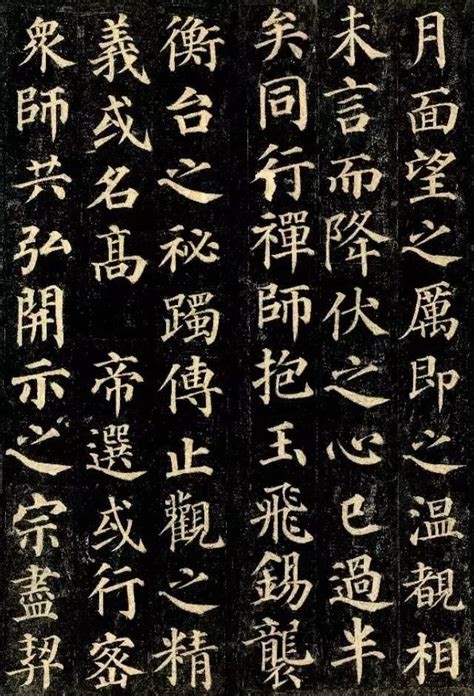 月面望之厲即之溫覩相
未言而降伏之心已過半
矣同行禪師抱玉飛錫襲
衡台之祕躅傳止觀之精
義或名高 帝選或行密
眾師共弘開示之宗盡契